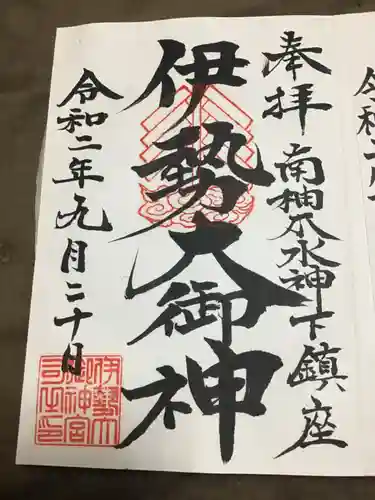 奉拝
南柚木水神下鎮座
伊勢大御神
令和二年九月二十日